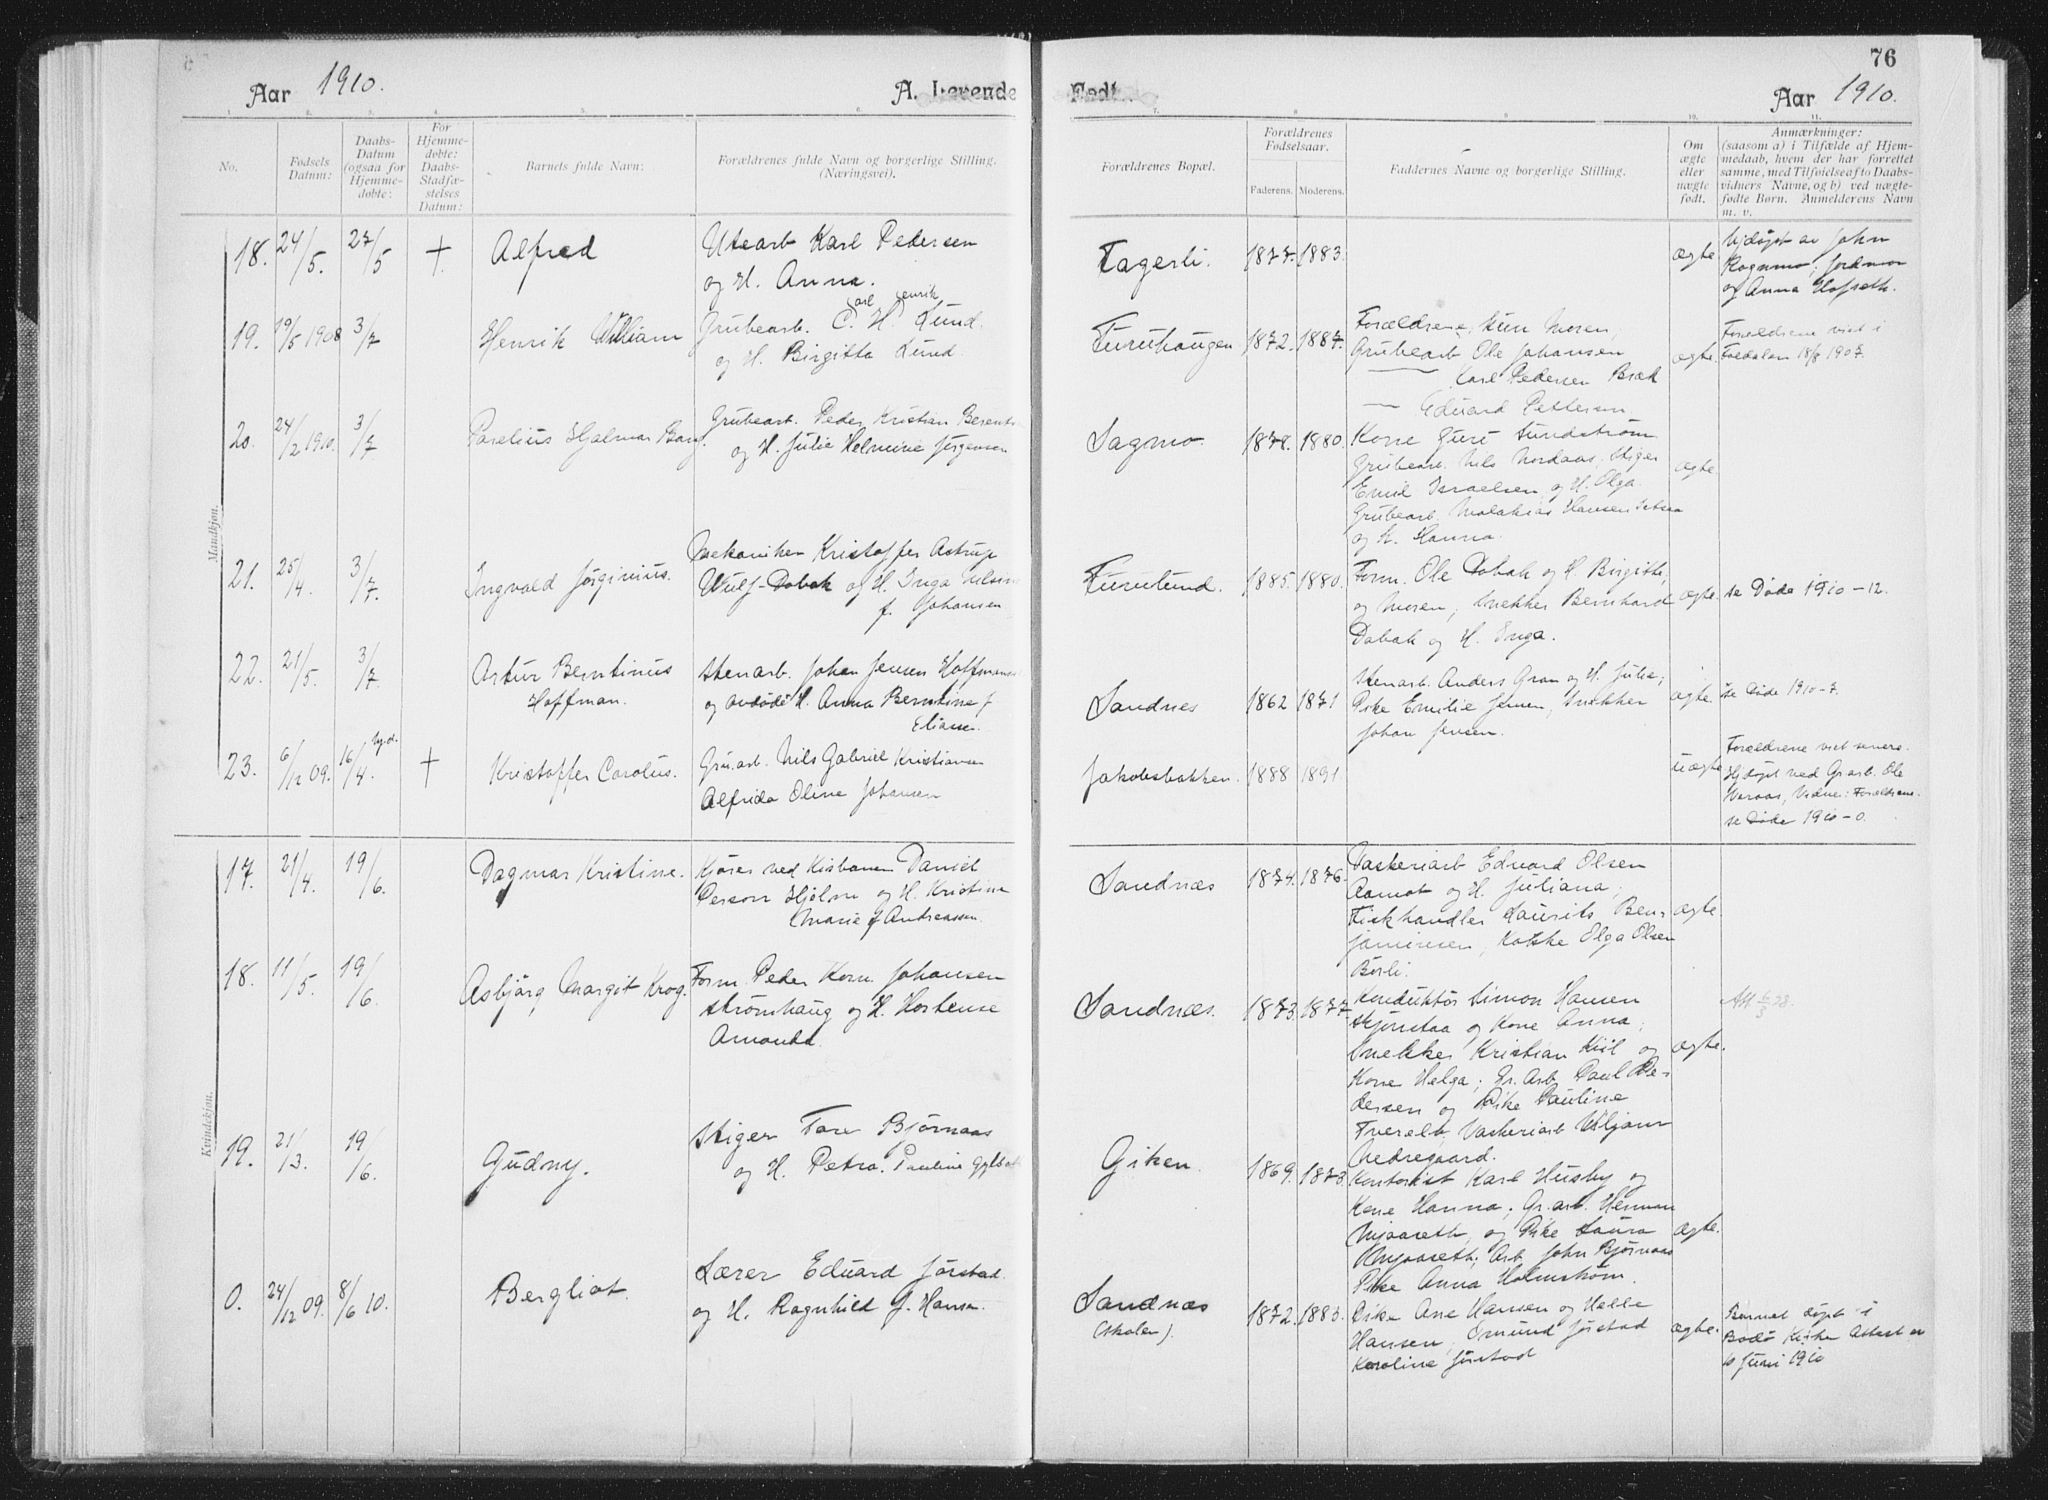 Aar 1910.
A. Levende
No.
Fødsels Datum:
Daabs-Datum (ogsaa for Hjemmedøbte:
For Hjemmedøbte: Daabs-Stadfæstelses Datum:
Barnets fulde Navn:
Forældrenes fulde Navn og borgerlige Stilling. (Næringsvei).
Mandkjøn.
18. 24/5. 27/5 + Alfred
Utearb Karl Pedersen
og H. Anna.
19. 19/5 1908 3/7 Henrik William
Carl Henrik
Grubearb. C. H. Lund.
og H. Birgitta Lund.
20. 24/2 1910. 3/7 Parelius Hjalmar Borg.
Grubearb. Peder Kristian
og H. Julie Helmine Jørgensen
21. 25/4. 3/7. Ingvald Jørginius.
Mekaniker Kristoffer Astrup
Wulf-Dobak og H. Inga
f. Johansen
22. 21/5. 3/7. Artur Berntinus
Hoffman.
Stenarb. Johan Jensen
og avdöde H. Anna Berntine f
Eliassen.
23. 6/12 09. 16/4. hj.d. + Kristoffer Carolus.
Gru.arb. Nils Gabriel Kristiansen
Alfrida Oline Johansen
Kvindekjøn.
17. 21/4. 19/6. Dagmar Kristine.
Kjører ved Kisbanen Daniel
Person Hjelm og H. Kristine
Marie f Andreassen.
18. 11/5. 19/6. Asbjørg Margit Krog.
Form. Peder Korn. Johansen
Strømhaug og H. Hortense
19. 21/3. 19/6. Gudny.
Stiger Tore Bjørnaas
og H. Petra. Pauline
0. 24/12 09. 8/6 10. Bergliot.
Lærer Eduard Jørstad.
og H. Ragnhild f. Hansen.
Født.
76
Aar 1910.
Forældrenes Bopæl.
Forældrenes Fødselsaar.
Faderens. Moderens.
Faddernes Navne og borgerlige Stilling.
Om ægte eller uægte født.
Anmærkninger:
(saasom a) i Tilfælde af Hjemmedaab, hvem der har forrettet samme, med Tilføielse af to Daabsvidners Navne, og b) ved uægtefødte Børn. Anmelderens Navn m. v.
Fagerli. 1877. 1883. ægte.
Hjdøpt av John
Rognmo; Jordmor
og Anna
Furuhaugen 1872. 1887.
Forældrene, kun Moren;
Grubearb Ole Johansen
Carl Pedersen Bræk
Eduard Pettersen
ægte.
Forældrene viet i
18/8 1907.
Sagmo. 1878. 1880.
Kone Guri Lundstrøm
Grubearb. Nils Nordaas; Stiger
Emil Israelsen og H. Olga
Grubearb. Malakias Hansen
og H. Hanna.
ægte
Furulund. 1885. 1880.
Form. Ole Dobak og H Birgitte,
og Moren; Snekker Bernhard
Dobak og H. Inga.
ægte.
se Døde 1910-12.
Sandnes 1862 1871
Stenarb. Anders Gran og H. Julie;
Pike Emilie Jensen, Snekker
Johan Jensen.
ægte.
se Døde 1910-7.
Jakobsbakken. 1888 1891. uægte
Forældrene viet senere.
Hjdøpt ved Gr.arb. Ole
Moraas, Vidne: Forældrene.
se Døde 1910-0.
Sandnæs 1874. 1876.
Vaskeriarb Edvard Olsen
Aamot og H. Juliana;
Fiskhandler Laurits Ben-
jaminsen, Kokke Olga Olsen
Børli.
ægte
Sandnæs. 1873. 1877.
Konduktør Simon Hansen
Skjønstaa og Kone Anna;
Snekker Kristian Kiil og
Kone Helga; Gr. Arb Paul Pe-
dersen og Pike Pauline
Tveraa, Vaskeriarb Viljam
Nedregaard.
ægte.
Giken. 1869. 1873.
Kontorist Karl Husby og
Kone Hanna; Gr.arb. Herman
Mjaaseth, og Pike Laura
Mjaaseth; Arb. John Bjørnaas
Pike Anna Holmstrøm.
ægte.
Sandnæs
(Skolen). 1872. 1883.
Pike Ane Hansen og Helle
Hansen; Osmund Jørstad
Karoline Jørstad
ægte.
Barnet døpt i
Bodø Kirke Attest av
10 Juni 1910